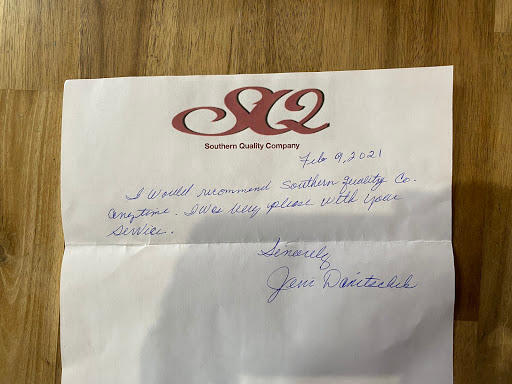 SQ
Southern Quality Company
Feb 9, 2021
I Would recommend Southern Quality Co.
anytime. I Was very please with your
Service.
Sincerely